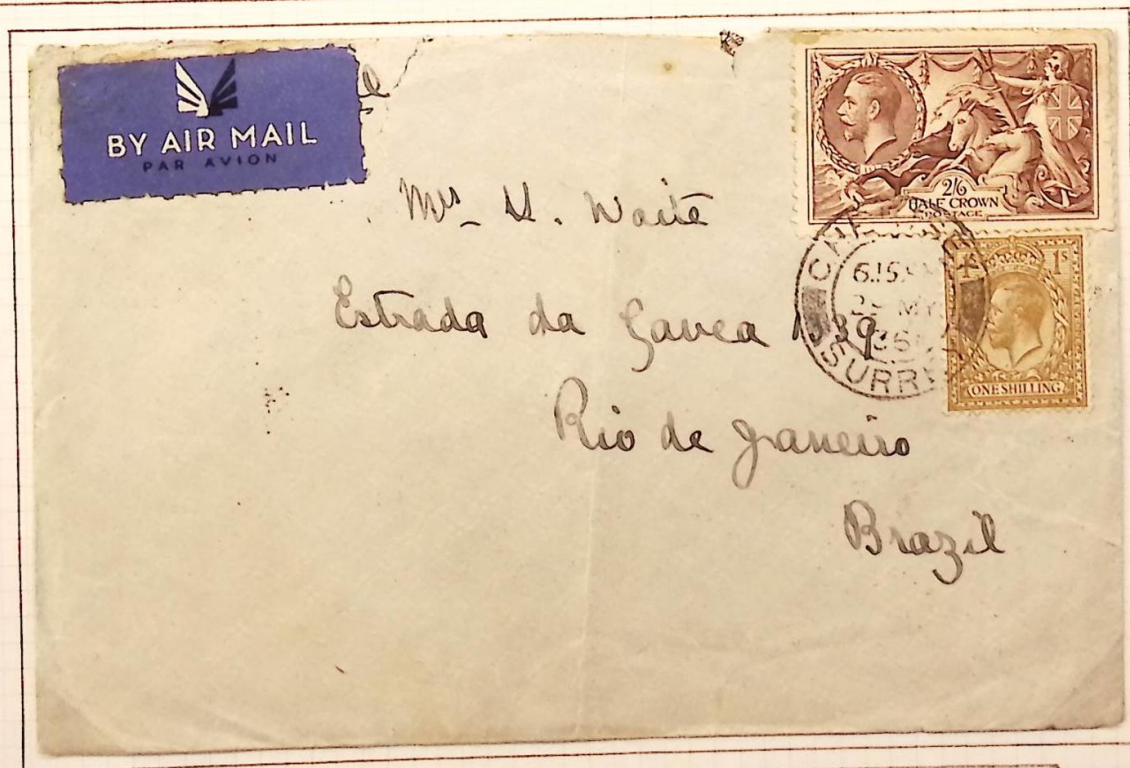 BY AIR MAIL
PAR AVION
2/6
HALF CROWN
POSTAGE
1s 1s
ONE SHILLING
6.15
MY
36
SURR
Mrs H. Waite
Estrada da Gavea 1339
Rio de Janeiro
Brazil